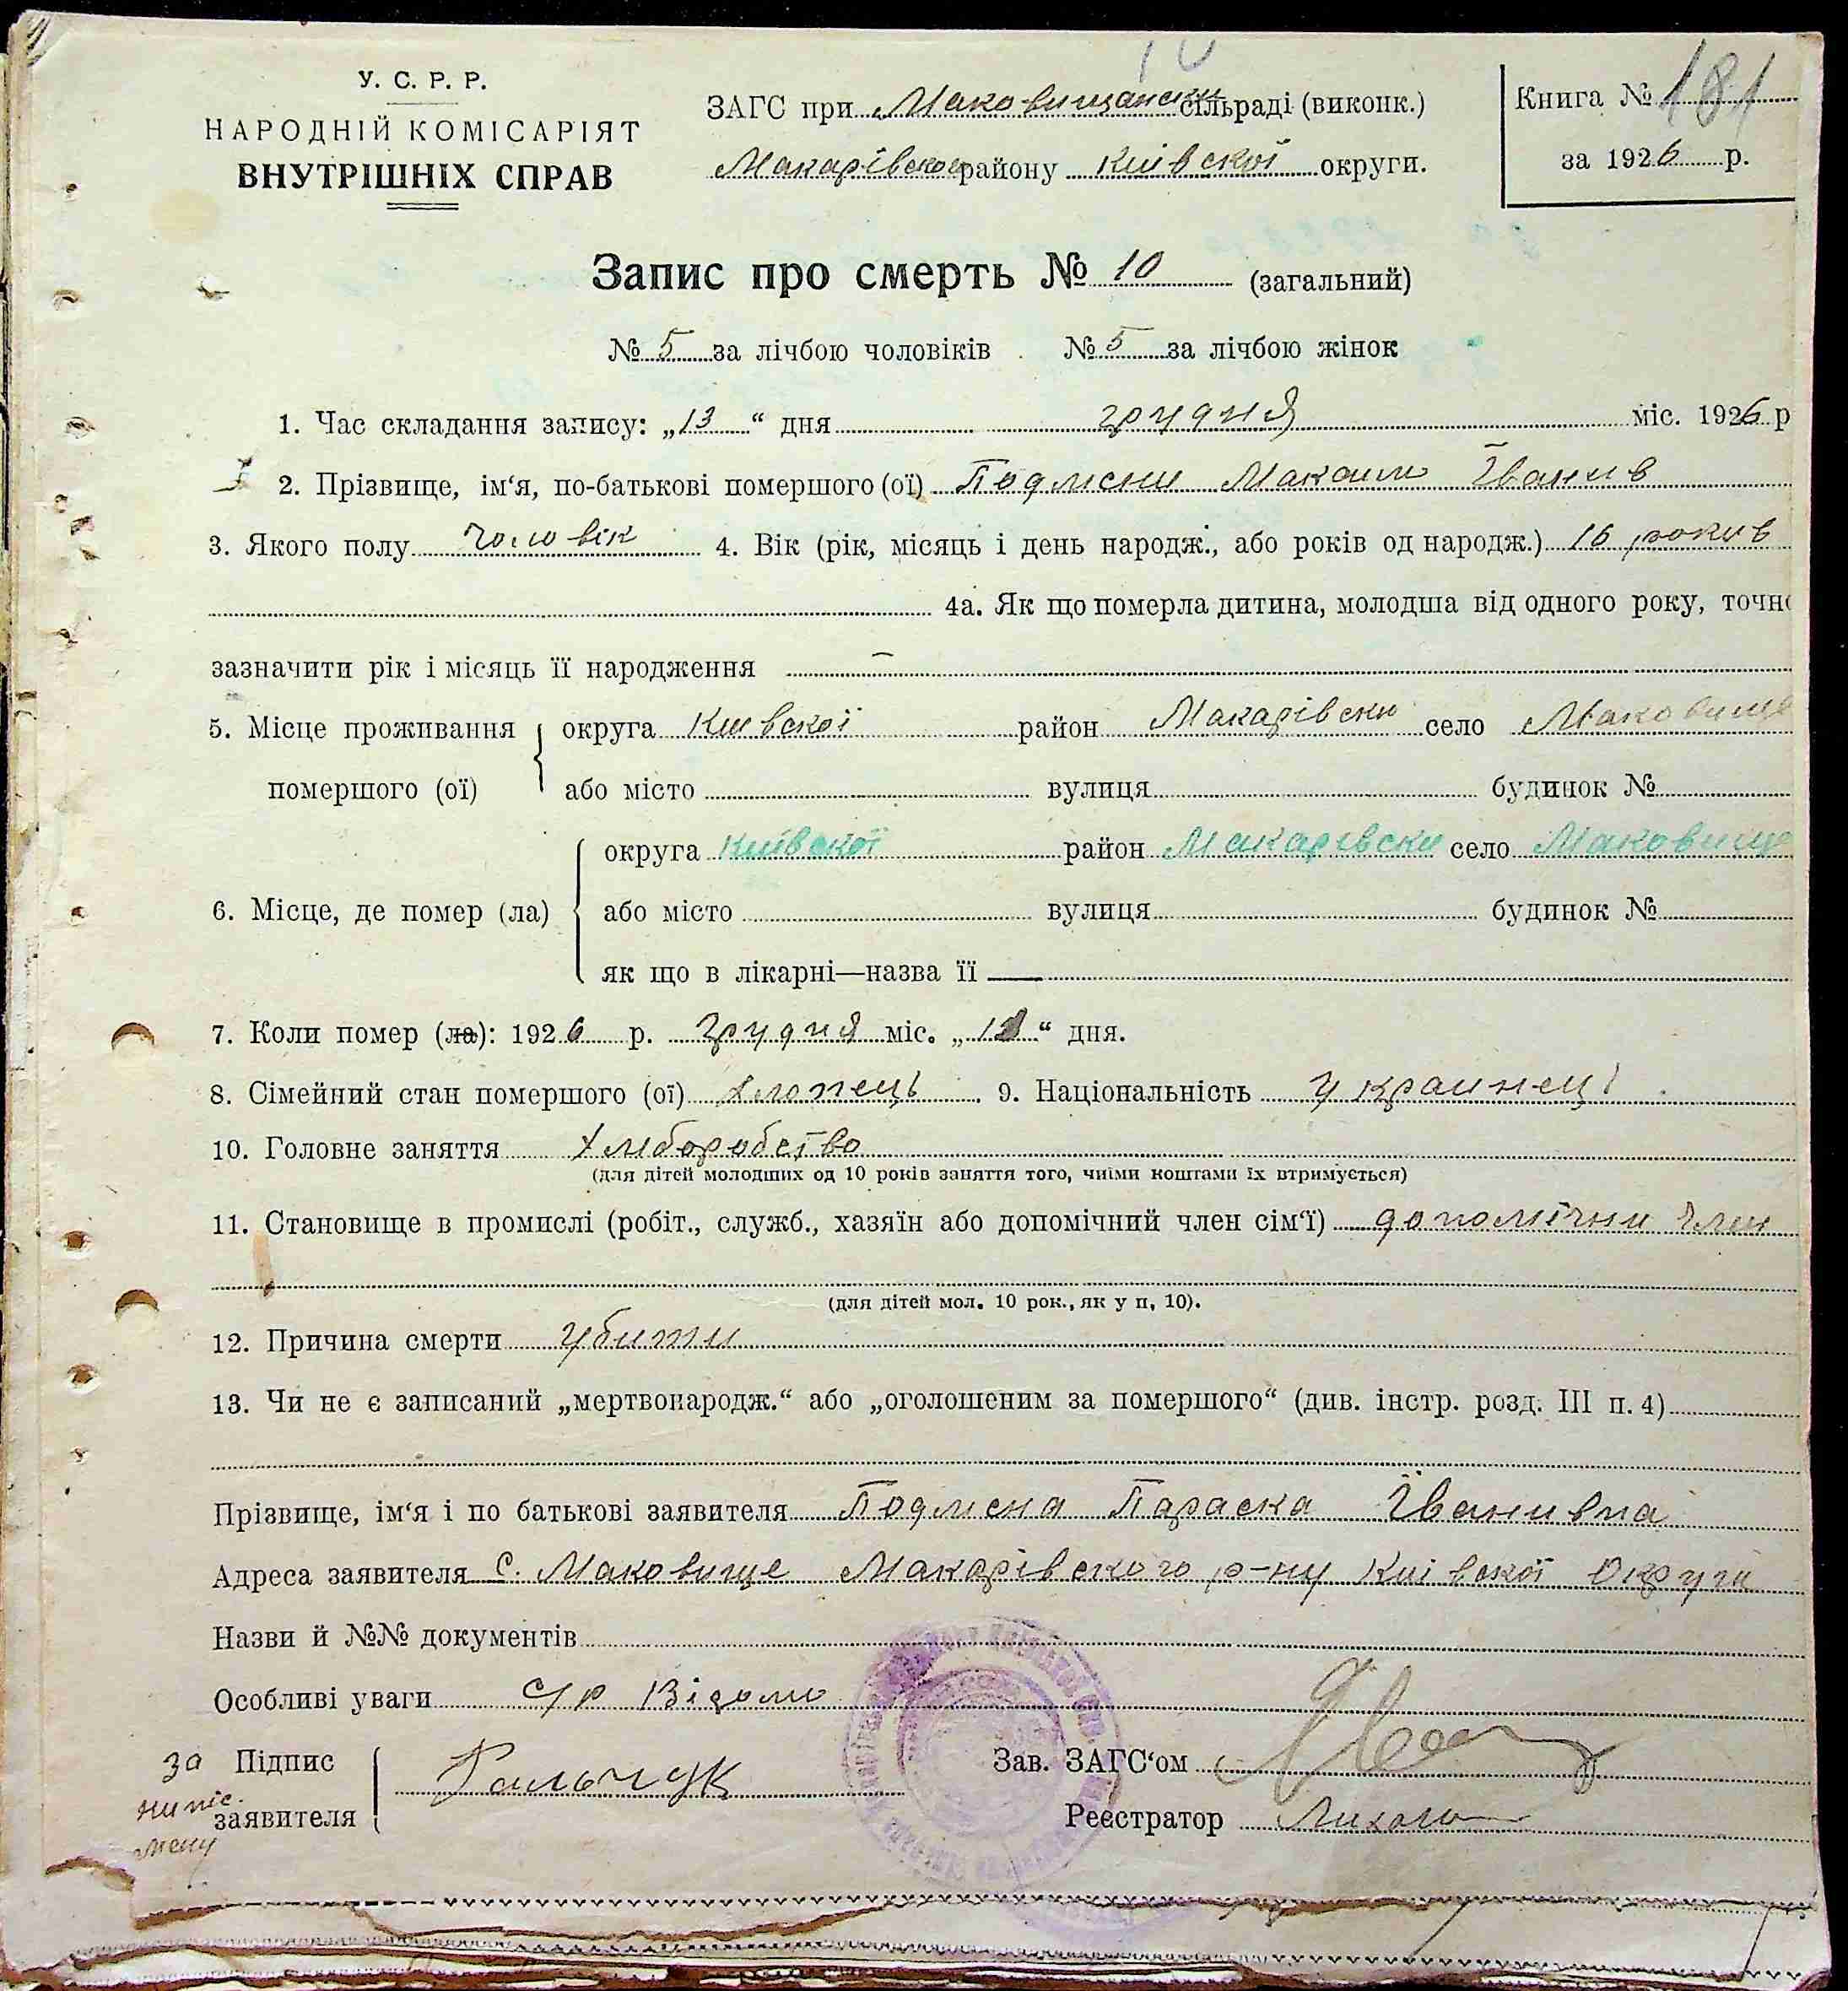 У. С. Р. Р.
НАРОДНІЙ КОМІСАРІЯТ
ВНУТРІШНІХ СПРАВ
ЗАГС при Маковищански сільраді (виконк.)
Макарівског району Київскої округи.
Книга № 181
за 1926 р.
Запис про смерть № 10 (загальний)
№ 5 за лічбою чоловіків № 5 за лічбою жінок
1. Час складання запису: „13“ дня грудня міс. 1926 р
2. Прізвище, ім‘я, по-батькові помершого (ої) Подмени Максим Іванив
3. Якого полу чоловік 4. Вік (рік, місяць і день народж., або років од народж.) 16 рокив
4а. Як що померла дитина, молодша від одного року, точно
зазначити рік і місяць її народження —
5. Місце проживання округа Киівскої район Макарівски село Маковище
помершого (ої) або місто вулиця будинок №
округа Київскої район Макарівски село Маковище
6. Місце, де помер (ла) або місто вулиця будинок №
як що в лікарні—назва її —
7. Коли помер (ла): 1926 р. грудня міс. „ “ дня.
8. Сімейний стан помершого (ої) хлопець. 9. Національність украинеці
10. Головне заняття Хлиборобство
(для дітей молодших од 10 років заняття того, чиїми коштами їх втримується)
11. Становище в промислі (робіт., служб., хазяїн або допомічний член сім‘ї) допомічни член
(для дітей мол. 10 рок., як у п, 10).
12. Причина смерти убити
13. Чи не є записаний „мертвонародж.“ або „оголошеним за помершого“ (див. інстр. розд. III п. 4)
Прізвище, ім‘я і по батькові заявителя Подмена Параска Іванивна
Адреса заявителя С. Маковище Макарівского р-ну Киівскої Округи
Назви й №№ документів
Особливі уваги с/р Відомо
За Підпис
нипис.
мену
заявителя
Гальчук
Зав. ЗАГС‘ом
Реєстратор